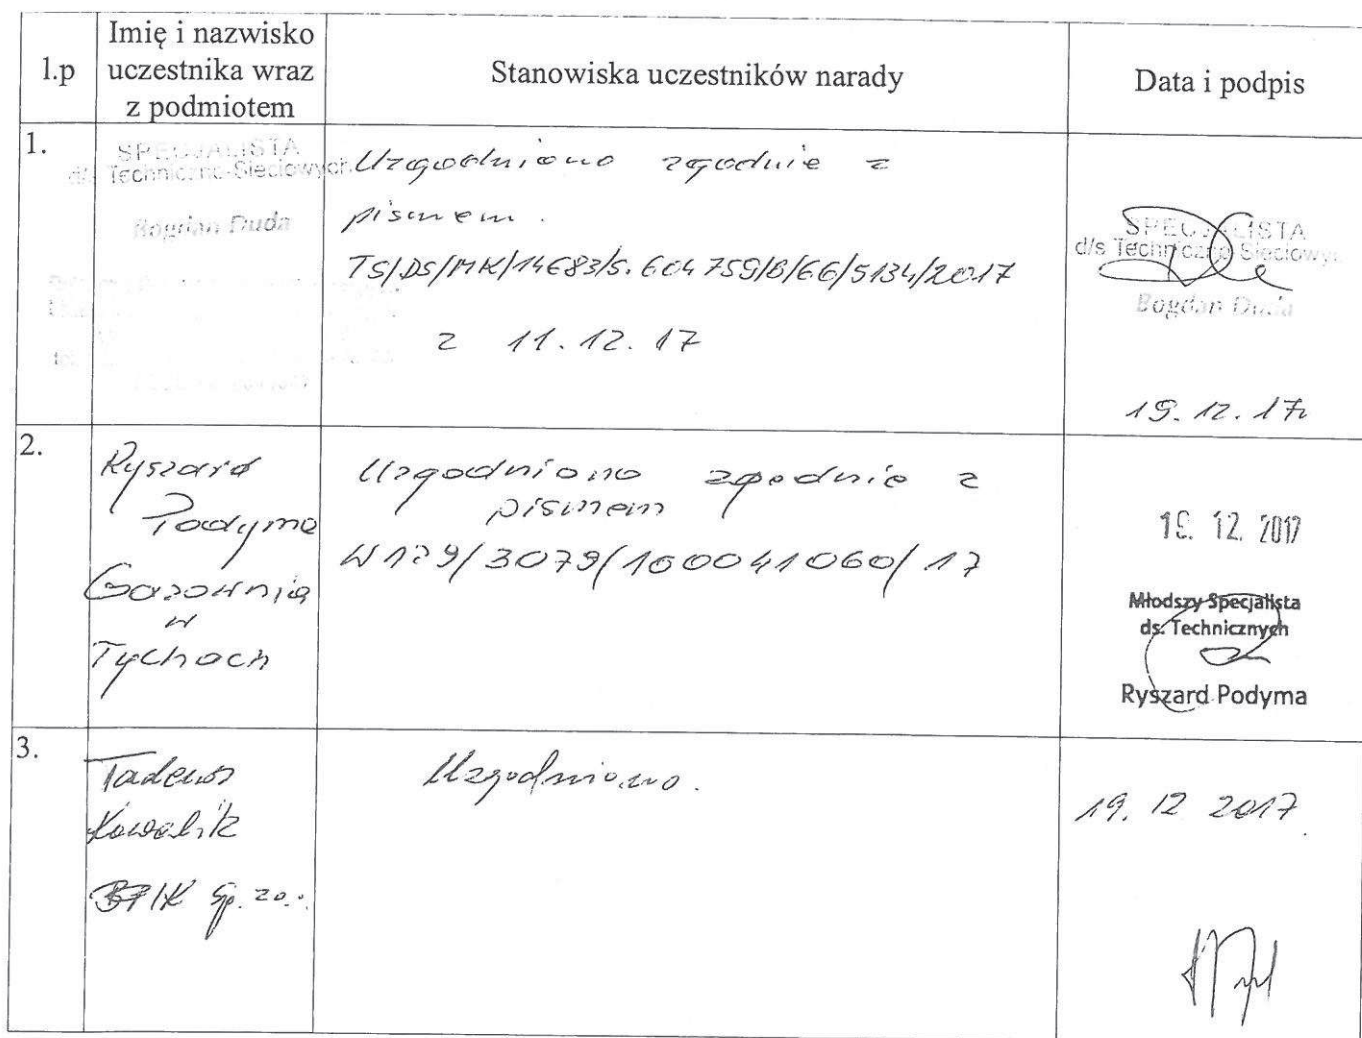 l.p
Imię i nazwisko
uczestnika wraz
z podmiotem
Stanowiska uczestników narady
Data i podpis
1.
SPECJALISTA
d/s Techniczno-Sieciowych
Bogdan Duda
Uzgodniono zgodnie z
pismem.
TS/DS/MK/14683/S.604759/B/66/5134/2017
z 11.12.17
SPECJALISTA
d/s Techniczno Sieciowyc
Bogdan Duda
19.12.17r
2.
Ryszard
Podyma
Gazownia
w
Tychach
Uzgodniono zgodnie z
pismem
W129/3079/160041060/17
19. 12. 2017
Młodszy Specjalista
ds. Technicznych
Ryszard Podyma
3.
Tadeusz
Kowalik
Sp. zo.o.
Uzgodniono.
19. 12 2017.